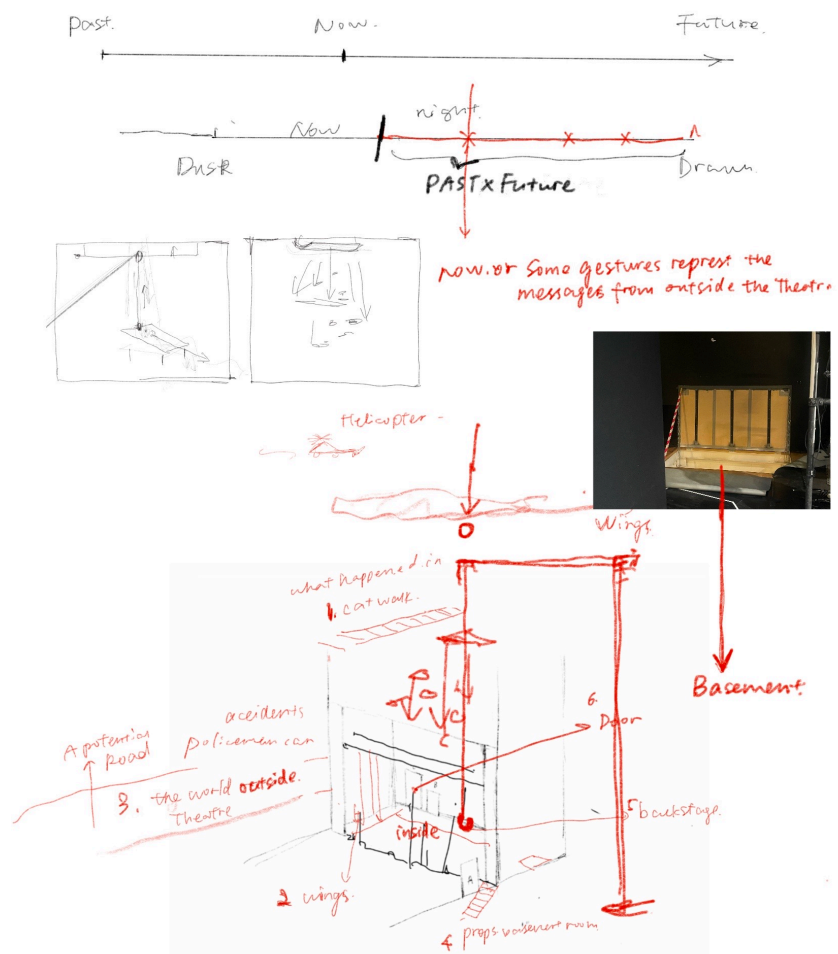 Past.
Now.
Future.
night.
Now
Dusk
Drawn.
PAST x Future
now. or Some gestures represt the
messages from outside the Theatre
Helicopter -
Wings.
what happened in
1. catwalk.
Basement.
6.
Door
accidents
policeman can
A potential
Road
3. the world outside.
Theatre
inside
5 backstage.
2 wings.
A
4 props. room